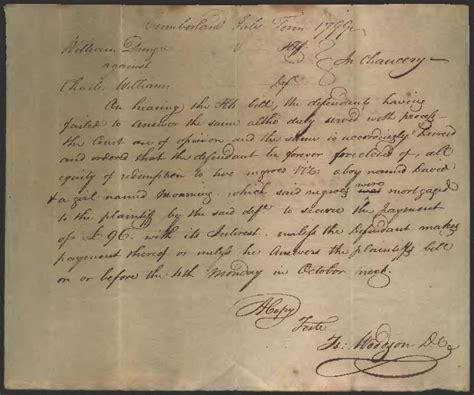 Cumberland July Term 1799.
William against Plf In Chancery
Charles Williams Deft
On hearing the Plfs bill, the defendants having
failed to answer the same altho duly served with process
the Court are of opinion and the same is accordingly Decreed
and ordered that the defendant be forever foreclosed of, all
equity of redemption to two negroes Viz: a boy named David
& a girl named Mourning which said negroes were mortgaged
to the plaintiff by the said deft to secure the payment
of £96. with its Interest. unless the Defendant makes
payment thereof or unless he Answers the plaintiffs bill
on or before the 4th Monday in October next.
A Copy
Teste
Woodson D.C.